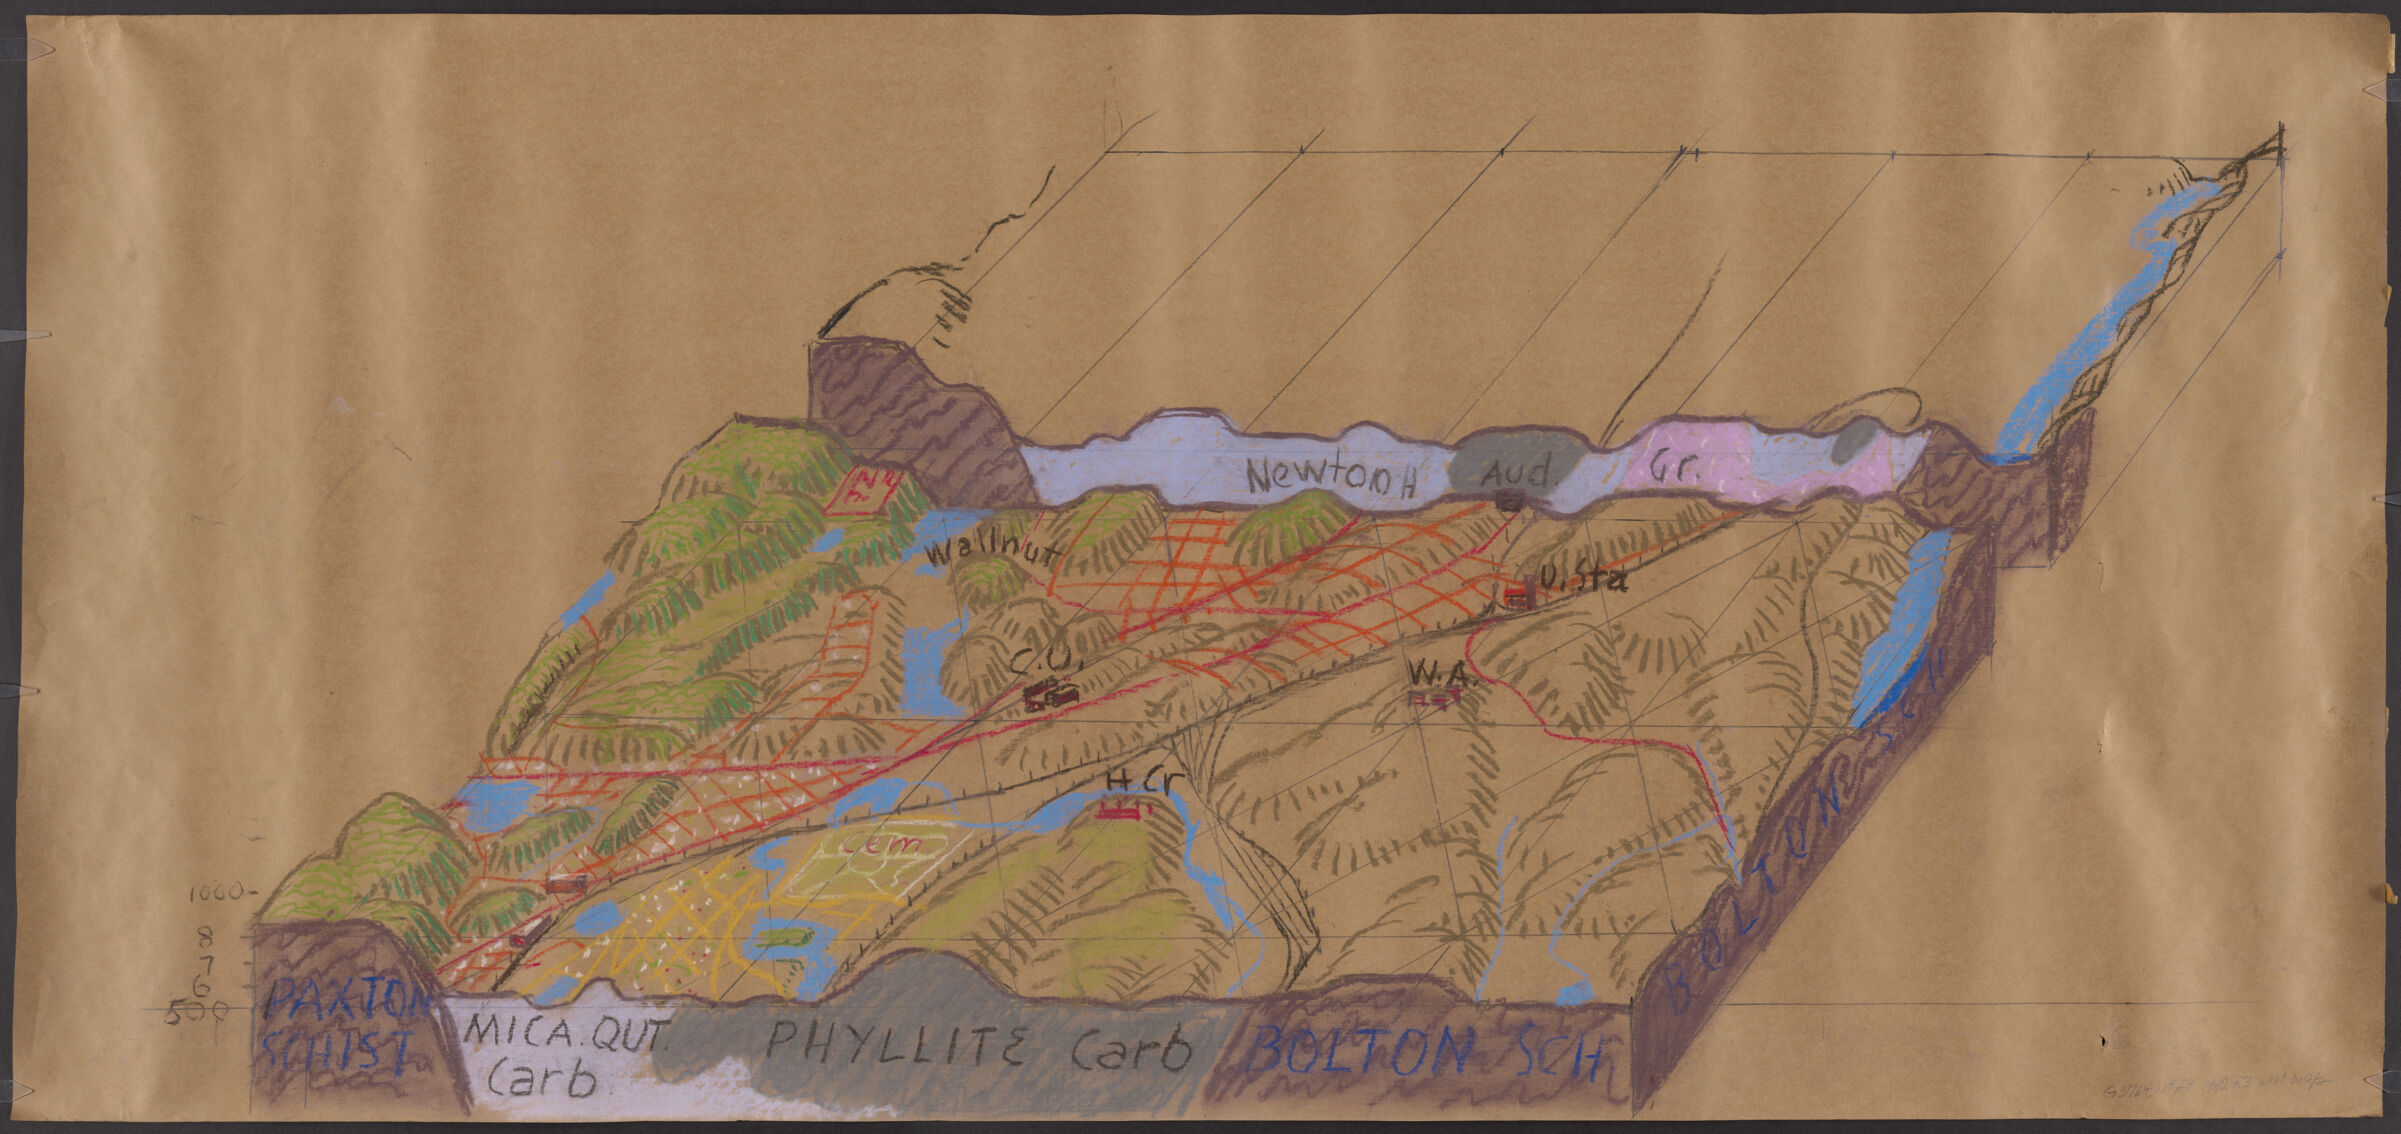 Newton H
Aud.
Gr.
Wallnut
U. Sta
C.U.
W.A.
H Cr
Cem
1000
8
7
6
500
PAXTON
SCHIST
MICA. QUT.
Carb
PHYLLITE Carb
BOLTON SCH
BOLTON SCH